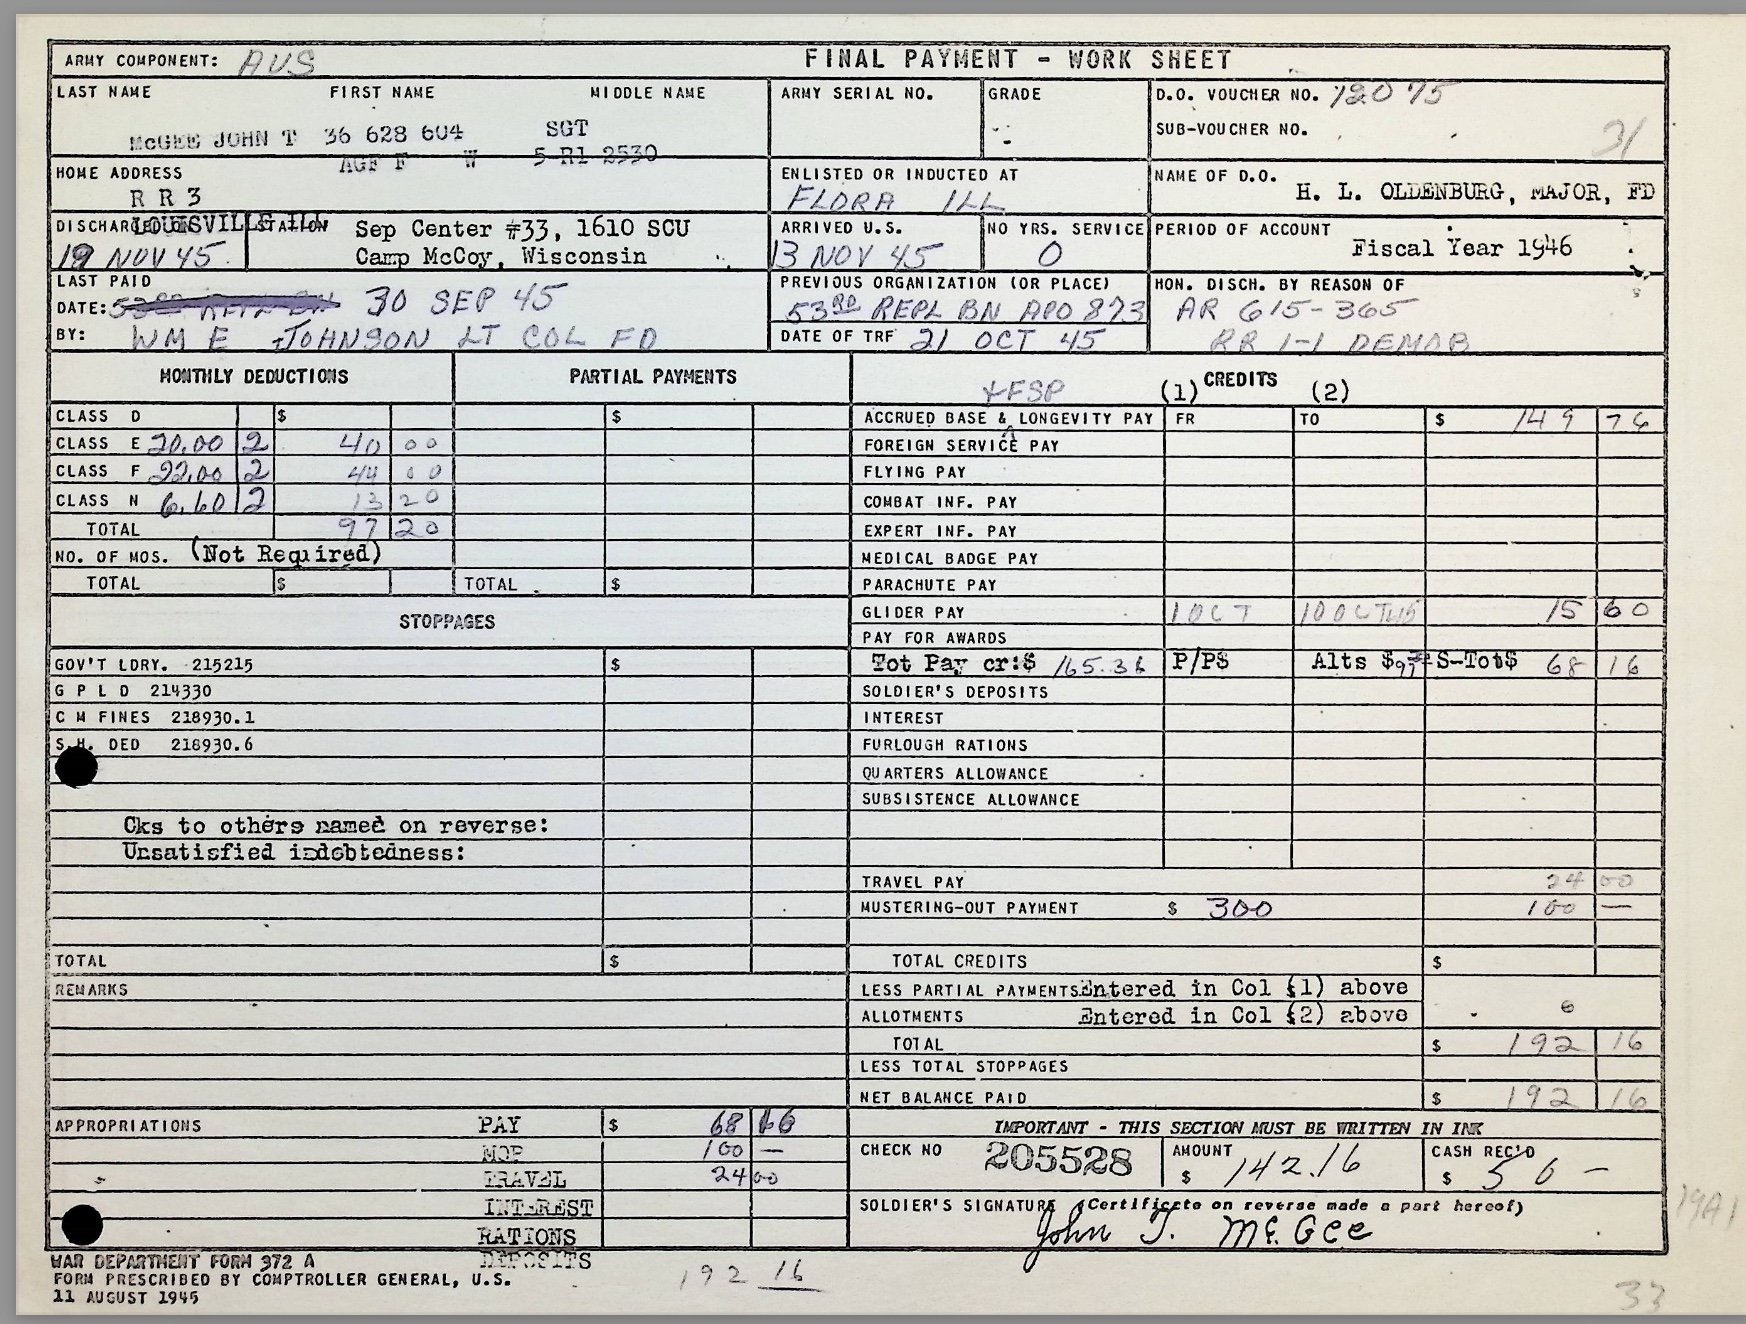 ARMY COMPONENT: AUS FINAL PAYMENT - WORK SHEET
LAST NAME FIRST NAME MIDDLE NAME ARMY SERIAL NO. GRADE D.O. VOUCHER NO. 12075
SUB-VOUCHER NO. 31
McGEE JOHN T 36 628 604 SGT
AGF F W 5-R1 2530
HOME ADDRESS ENLISTED OR INDUCTED AT NAME OF D.O.
R R 3 FLORA ILL H. L. OLDENBURG, MAJOR, FD
LOUISVILLE ILL
DISCHARGED STATION Sep Center #33, 1610 SCU ARRIVED U.S. NO YRS. SERVICE PERIOD OF ACCOUNT
19 NOV 45 Camp McCoy, Wisconsin 13 NOV 45 0 Fiscal Year 1946
LAST PAID PREVIOUS ORGANIZATION (OR PLACE) HON. DISCH. BY REASON OF
DATE: 30 SEP 45 53RD REPL BN APO 873 AR 615-365
BY: WM E JOHNSON LT COL FD DATE OF TRF 21 OCT 45 RR 1-1 DEMOB
MONTHLY DEDUCTIONS PARTIAL PAYMENTS +FSP (1) CREDITS (2)
CLASS D $ $ ACCRUED BASE & LONGEVITY PAY FR TO $ 149 76
CLASS E 20.00 2 40 00 FOREIGN SERVICE PAY
CLASS F 22.00 2 44 00 FLYING PAY
CLASS N 6.60 2 13 20 COMBAT INF. PAY
TOTAL 97 20 EXPERT INF. PAY
NO. OF MOS. (Not Required) MEDICAL BADGE PAY
TOTAL $ TOTAL $ PARACHUTE PAY
STOPPAGES GLIDER PAY 1 OCT 10 OCT 45 15 60
PAY FOR AWARDS
GOV'T LDRY. 215215 $ Tot Pay cr:$ 165.36 P/P$ Alts $97.20 S-Tot$ 68 16
G P L D 214330 SOLDIER'S DEPOSITS
C M FINES 218930.1 INTEREST
S.H. DED 218930.6 FURLOUGH RATIONS
QUARTERS ALLOWANCE
SUBSISTENCE ALLOWANCE
Cks to others named on reverse:
Unsatisfied indebtedness:
TRAVEL PAY 24 00
MUSTERING-OUT PAYMENT $ 300 100 —
TOTAL $ TOTAL CREDITS $
REMARKS LESS PARTIAL PAYMENTS Entered in Col (1) above
ALLOTMENTS Entered in Col (2) above
TOTAL $ 192 16
LESS TOTAL STOPPAGES
NET BALANCE PAID $ 192 16
APPROPRIATIONS PAY $ 68 16 IMPORTANT - THIS SECTION MUST BE WRITTEN IN INK
MOP 100 — CHECK NO 205528 AMOUNT $ 142.16 CASH REC'D $ 50 —
TRAVEL 24 00
INTEREST SOLDIER'S SIGNATURE (Certificate on reverse made a part hereof)
RATIONS John T. McGee
DEPOSITS
19A1
WAR DEPARTMENT FORM 372 A
FORM PRESCRIBED BY COMPTROLLER GENERAL, U.S. 192 16
11 AUGUST 1945 33